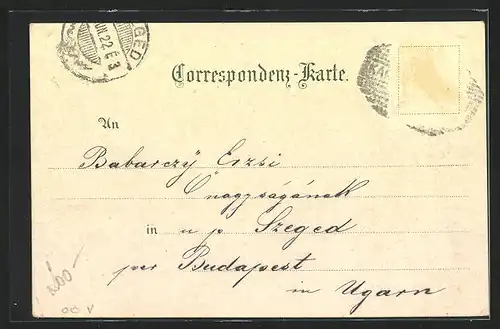 GED
ÚN. 22 É 3
Correspondenz-Karte.
KAR
An
Babarczÿ Erzsi
Ő nagyságának
in u. p. Szeged
per Budapest
in Ugarn
200-